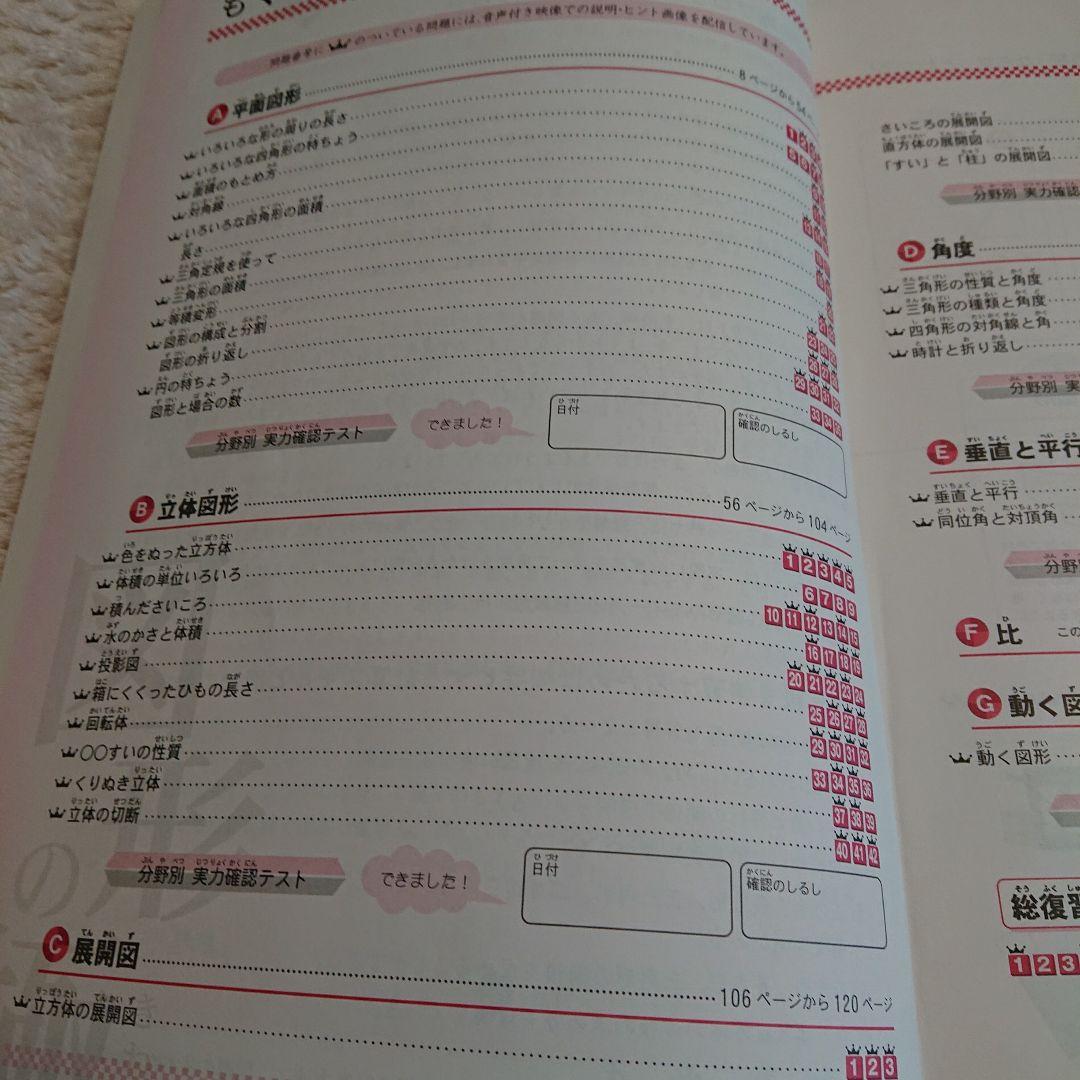 問題番号に のついている問題には、音声付き映像での説明・ヒント画像を配信しています。
A 平面図形 8ページから
いろいろな形の周りの長さ
いろいろな四角形の特ちょう
面積のもとめ方
対角線
いろいろな四角形の面積
長さ
三角定規を使って
三角形の面積
等積変形
図形の構成と分割
図形の折り返し
円の特ちょう 29 30 31 32
図形と場合の数 33 34 35
分野別 実力確認テスト
できました!
日付
確認のしるし
B 立体図形 56ページから104ページ
色をぬった立方体 1 2 3 4 5
体積の単位いろいろ 6 7 8 9
積んださいころ 10 11 12 13 14 15
水のかさと体積 16 17 18 19
投影図 20 21 22 23 24
箱にくくったひもの長さ 25 26 27 28
回転体 29 30 31 32
○○すいの性質 33 34 35 36
くりぬき立体 37 38 39
立体の切断 40 41 42
分野別 実力確認テスト
できました!
日付
確認のしるし
C 展開図 106ページから120ページ
立方体の展開図 1 2 3
さいころの展開図
直方体の展開図
「すい」と「柱」の展開図
分野別 実力確認
D 角度
三角形の性質と角度
三角形の種類と角度
四角形の対角線と角
時計と折り返し
分野別 実力確
E 垂直と平行
垂直と平行
同位角と対頂角
分野別
F 比 この
G 動く図
動く図形
総復習
1 2 3